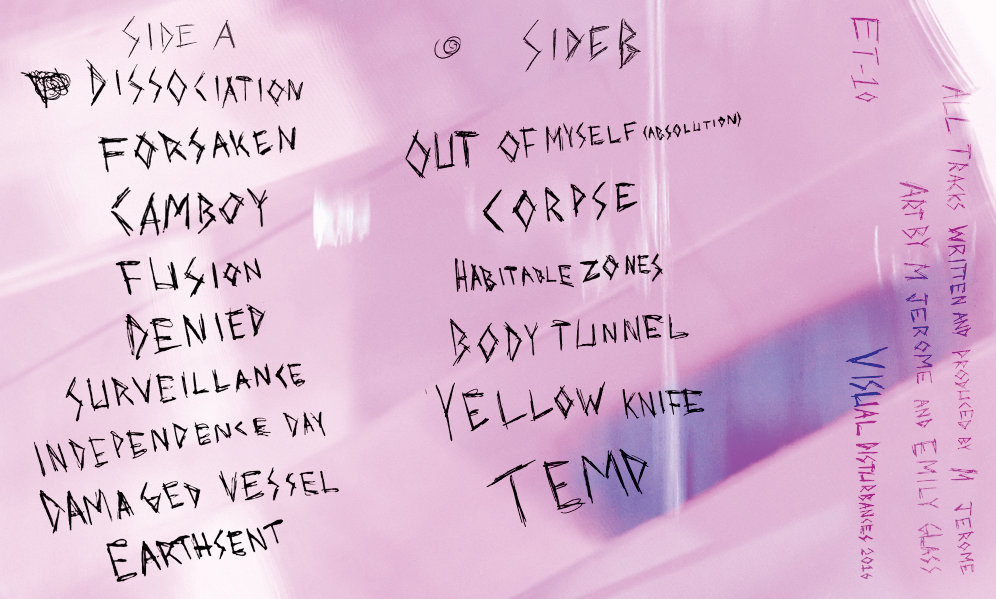 SIDE A
DISSOCIATION
FORSAKEN
CAMBOY
FUSION
DENIED
SURVEILLANCE
INDEPENDENCE DAY
DAMAGED VESSEL
EARTHSENT
SIDE B
OUT OF MYSELF (ABSOLUTION)
CORPSE
HABITABLE ZONES
BODY TUNNEL
YELLOW KNIFE
TEMD
ET-10
ALL TRACKS WRITTEN AND PRODUCED BY M JEROME
ART BY M JEROME AND EMILY GLASS
VISUAL DISTURBANCES 2016